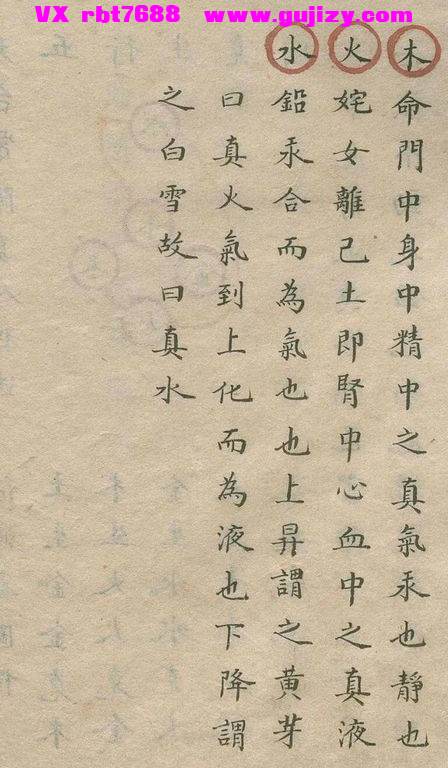 VX rbt7688 www.gujizy.com
木命門中身中精中之真氣汞也靜也
火姹女離己土即腎中心血中之真液
水鉛汞合而為氣也也上昇謂之黃芽
曰真火氣到上化而為液也下降謂
之白雪故曰真水